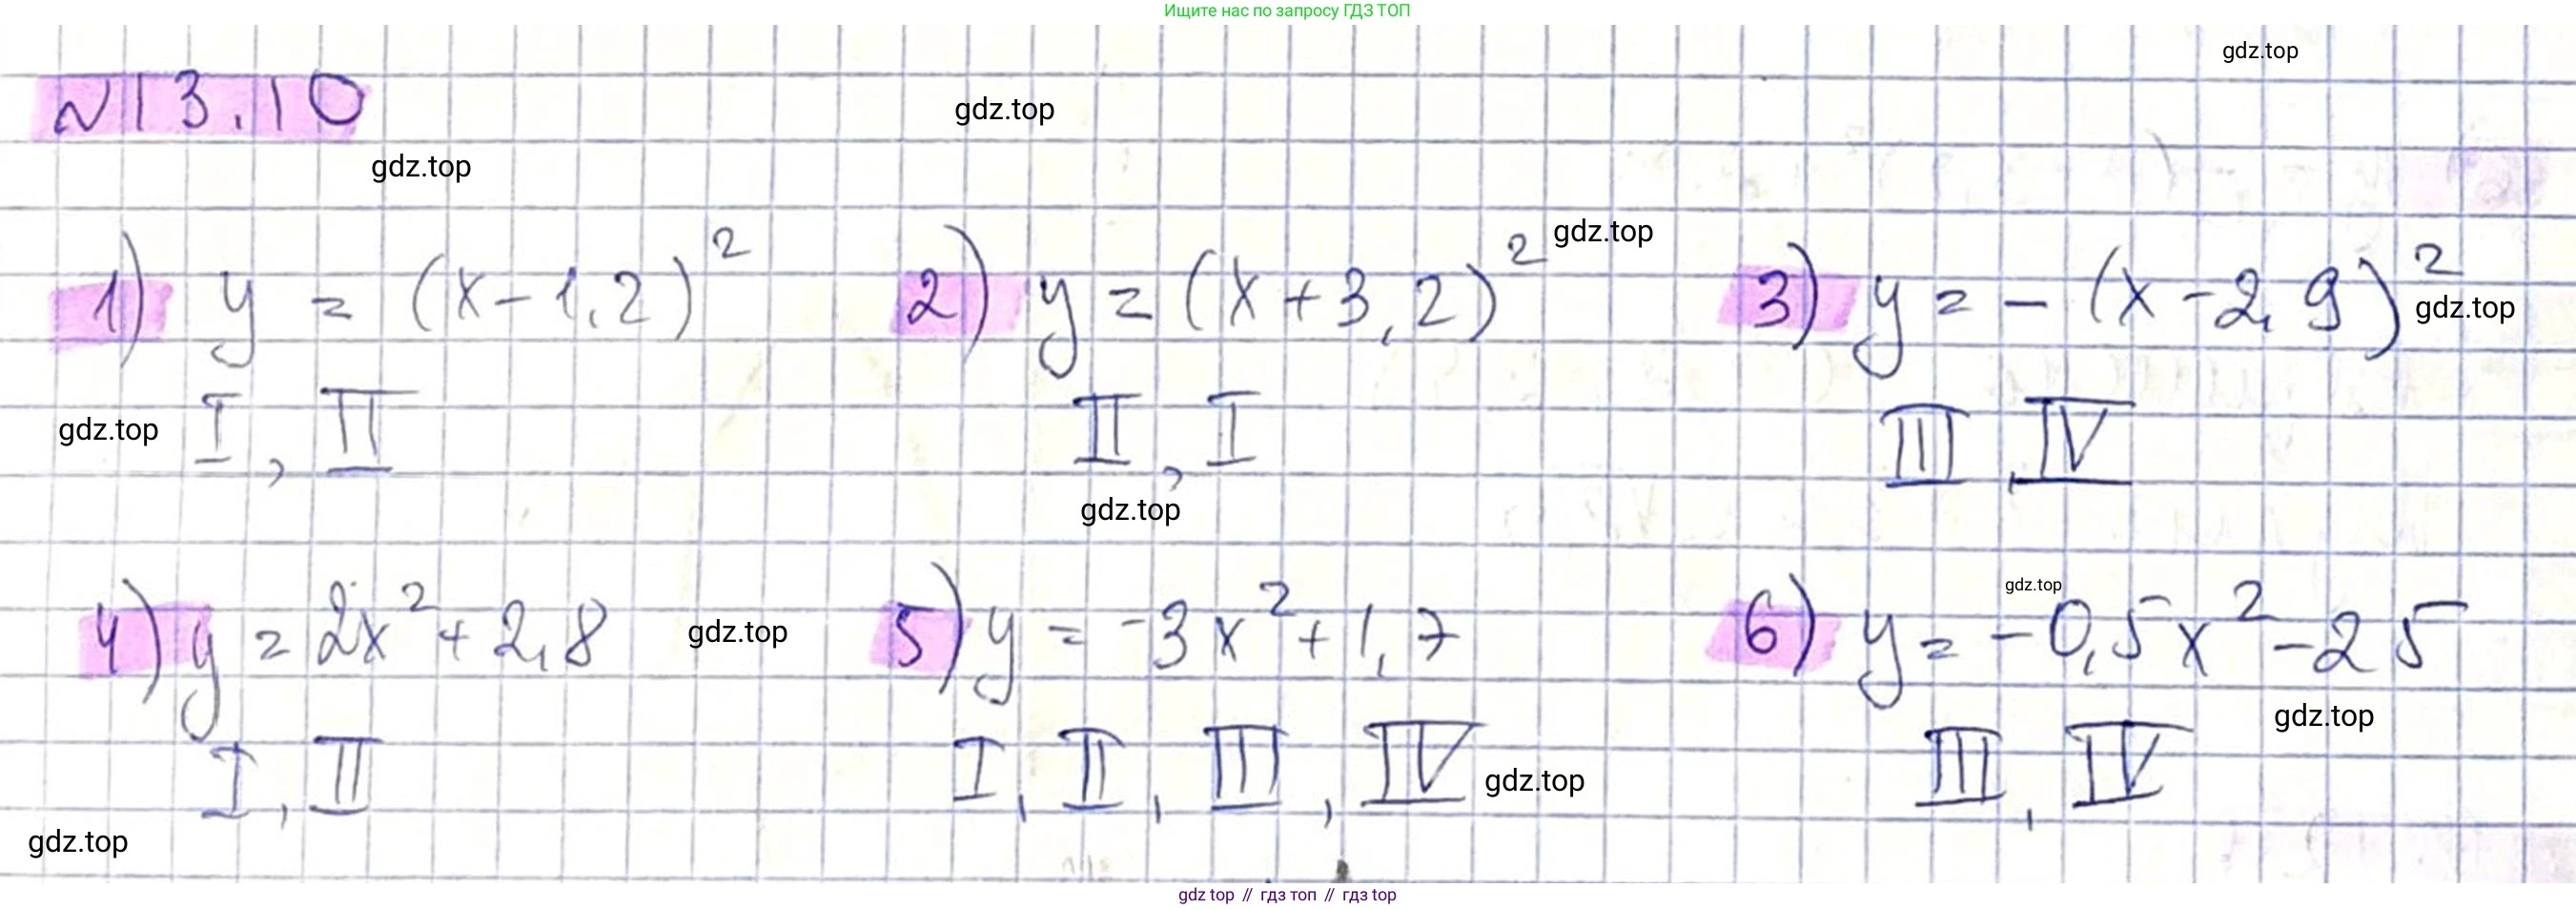 Ищите нас по запросу ГДЗ ТОП
gdz.top
N13.10
gdz.top
gdz.top
gdz.top
1) y = (x-1,2)² 2) y = (x+3,2)² 3) y = -(x-2,9)²
gdz.top
gdz.top I, II II, I III, IV
gdz.top
gdz.top
4) y = 2x²+2,8 gdz.top 5) y = -3x²+1,7 6) y = -0,5x²-25
gdz.top
I, II I, II, III, IV gdz.top III, IV
gdz.top
gdz top // гдз топ // гдз top